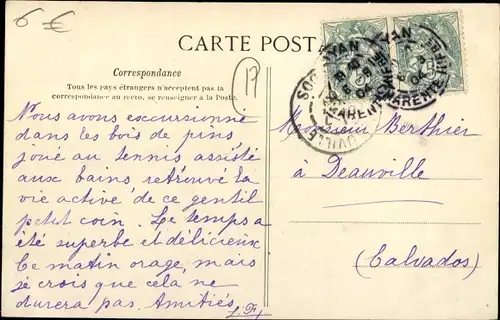 6 €
CARTE POSTALE
Correspondance
Tous les pays étrangers n'acceptent pas la
correspondance au recto, se renseigner à la Poste.
17
Nous avons excursionné
dans les bois de pins
joué au tennis assisté
aux bains retrouvé la
vie active de ce gentil
petit coin. Le temps a
été superbe et délicieux
Ce matin orage, mais
je crois que cela ne
durera pas. Amitiés
L.F.
Monsieur Berthier
à Deauville
(Calvados)